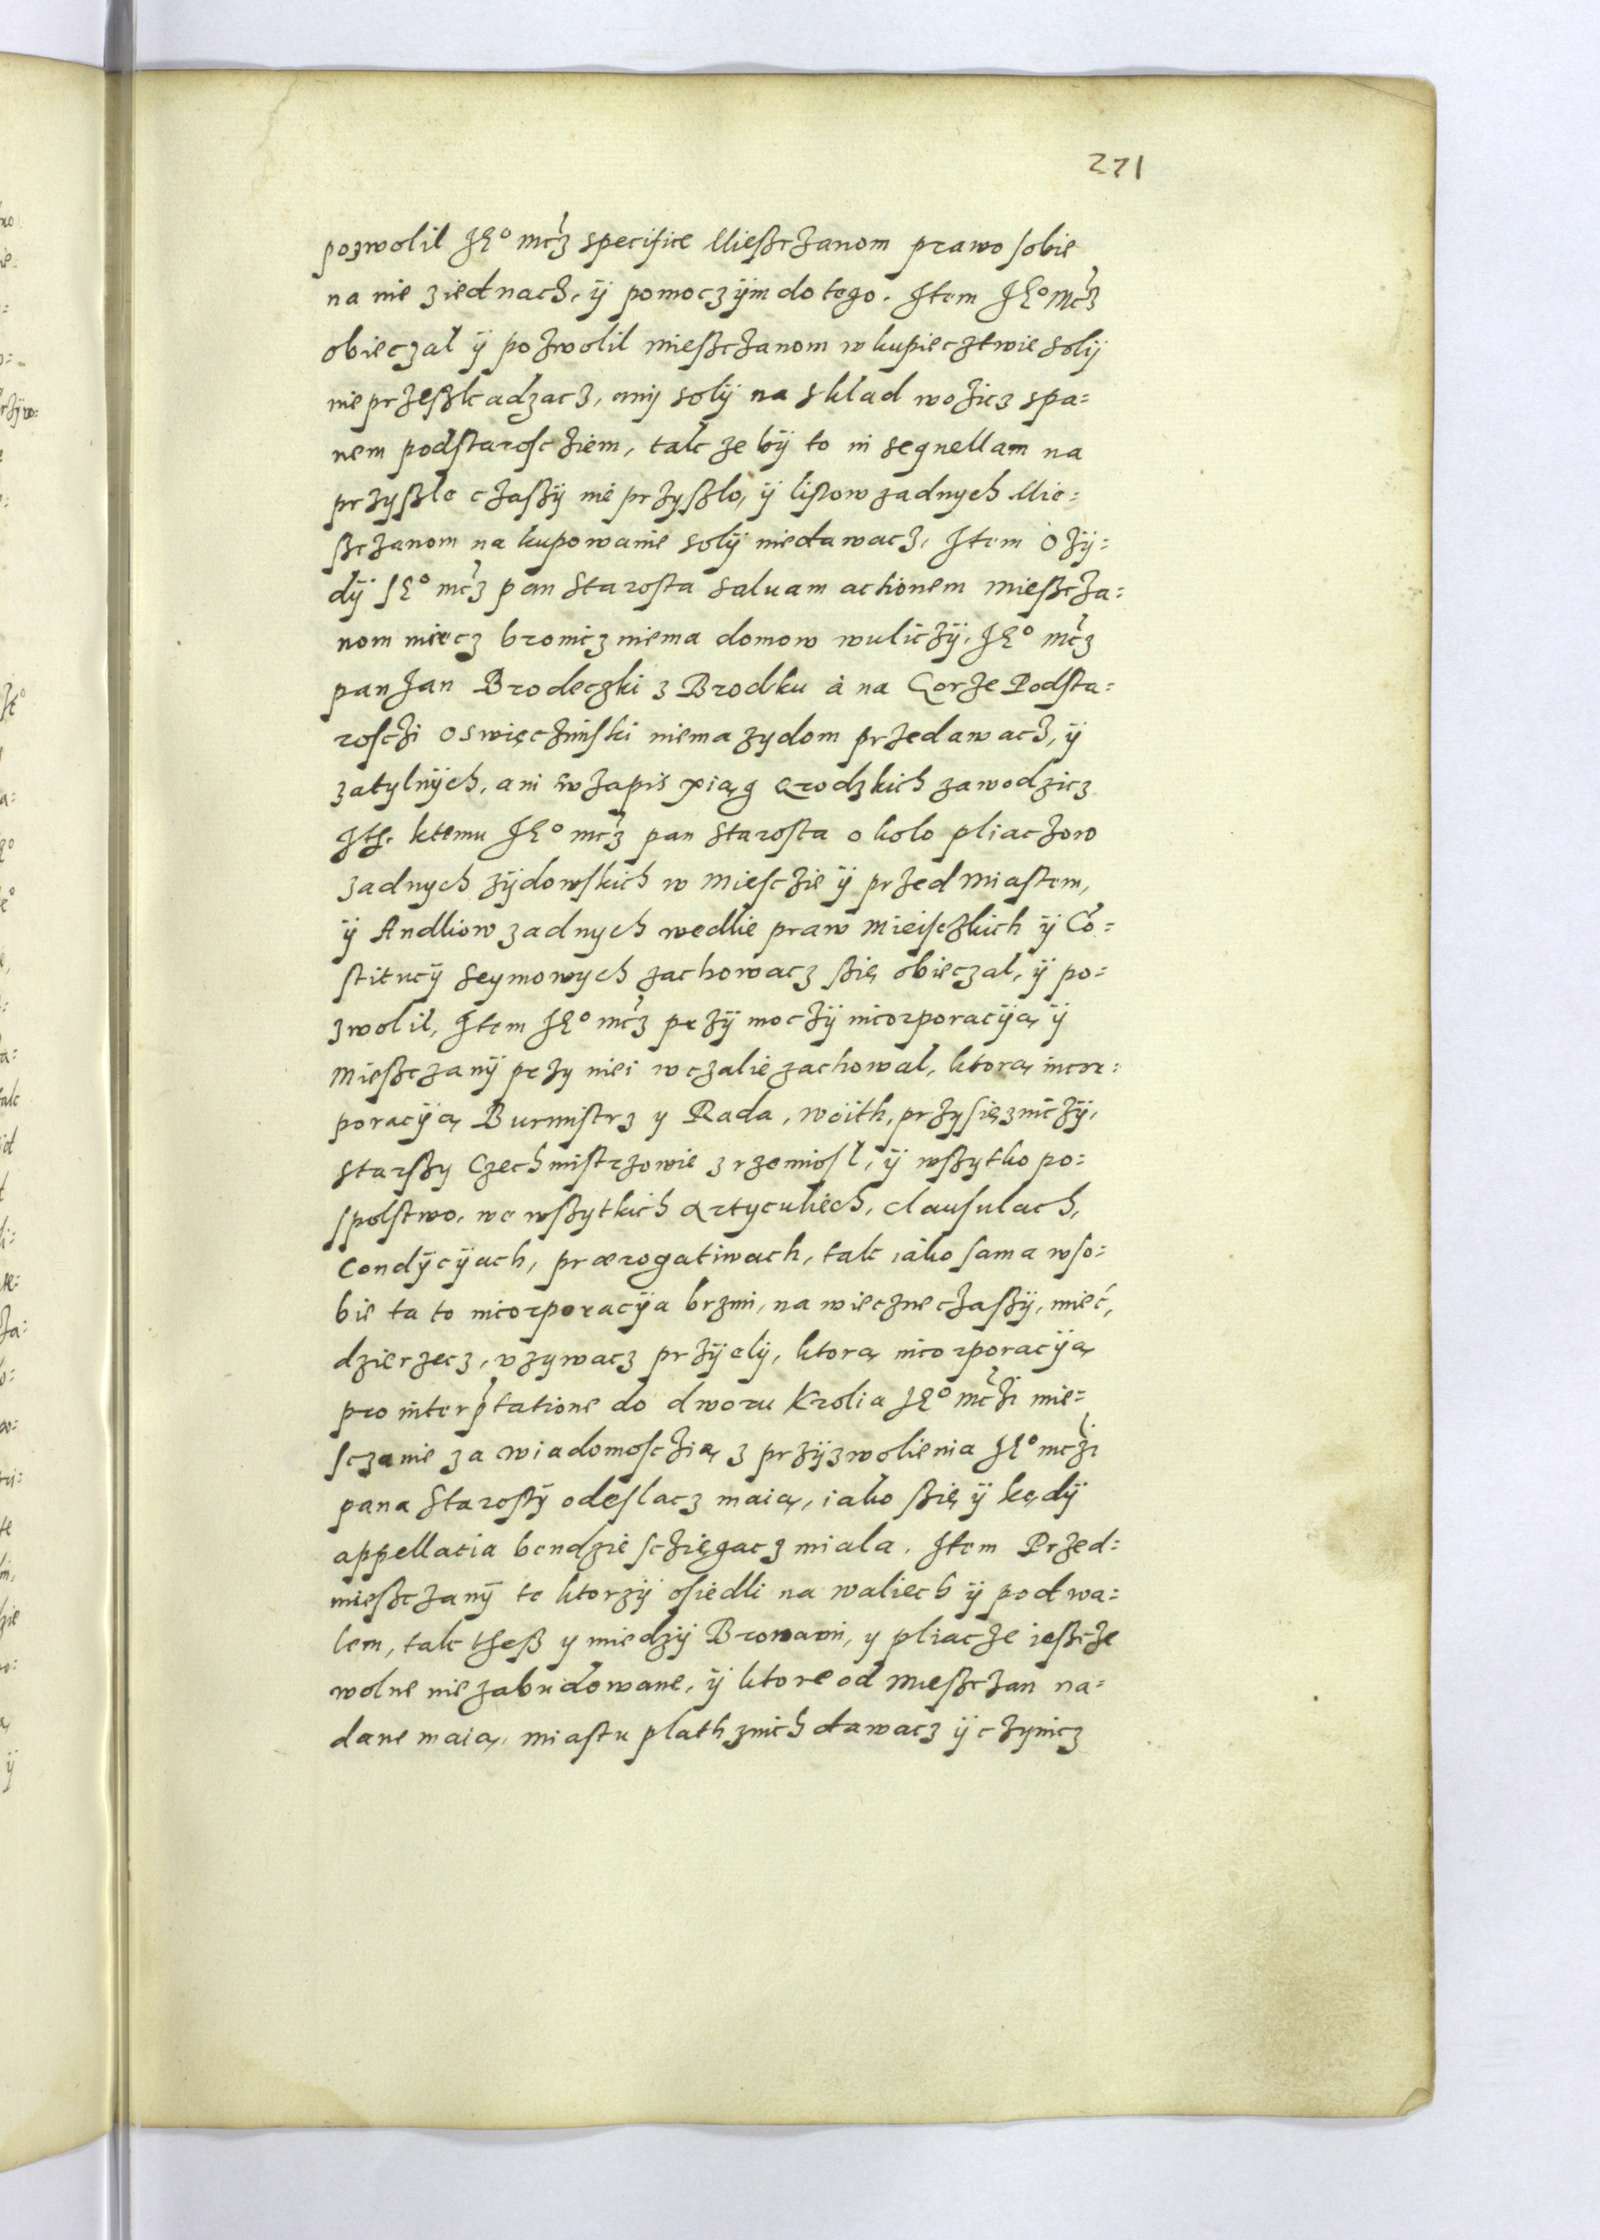 271
pozwolil JE° mcz specifice Miesczanom prawo sobie
na nie ziednach, ÿ pomoc zÿm do tego. Item JE° mcz
obieczal ÿ pozwolil mieszczanom w kupiecztwie solÿ
nie przeszkadzacz, anÿ solÿ na sklad wozicz spa=
nem podstarosciem, tak ze bÿ to in segnellam na
przyszle czaszÿ nie przyszlo, ÿ listow zadnych Mie=
szczanom na kupowanie solÿ niedawacz, Item o zÿ=
dÿ JE° mcz pan Starosta saluam actionem mieszcza=
nom miecz bronicz niema domow wuliczÿ, JE° mcz
pan Jan Brodeczki z Brodku à na Gorze Podsta=
roschi oswięczimski niema zydom przedawacz, ÿ
zatylnÿch, ani w zapis xiąg grodzkich zawodzicz
Ith. ktemu JE° mcz pan Starosta okolo pliaczow
zadnych zÿdowskich w miesczie ÿ przed miastem,
ÿ Andliow zadnych wedlie praw mieisczkich ÿ Cō=
stitucÿ Seymowych zachowacz szię obieczal, ÿ po=
zwolil, Item JE° mcz przÿ moczÿ incorporacÿą ÿ
mieszczanÿ przy niei wczalie zachowal, ktorą incor=
poracÿą Burmistrz y Rada, woith, przysięzniczÿ,
starszy Czechmistrzowie z rzemiosl, ÿ wszytko po=
spolstwo, we wszytkich artyculiech, clausulach,
Condÿcÿach, prærogatiwach, tak iako sama wso=
bie ta to incorporacÿa brzmi, na wieczne czaszÿ, mieć,
dzierzecz, vzywacz przÿelÿ, ktorą incorporacÿą
pro interptatione do dworu Krolia JE° mczi mie=
sczanie za wiadomoscią z przÿzwolienia JE° mczi
pana Starostÿ odeslacz maią, iako szię ÿ kędÿ
appellacia bendzie sczięgacz miala. Item Przed=
mieszczanÿ te ktorzÿ osiedli na waliech ÿ podwa=
lem, tak thesz y miedzÿ Browarmi, y pliacze ieszcze
wolne niezabudowane, ÿ ktore od mieszczan na=
dane maią, miastu plath znich dawacz ÿ czynicz